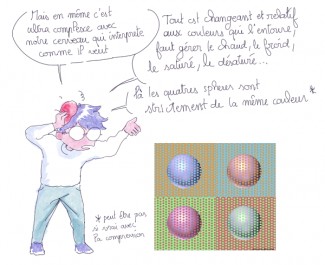 Mais en même c'est
ultra complexe avec
notre cerveau, qui interprete
comme il veut
Tout est changeant et relatif
aux couleurs qui l'entoure,
faut gérer le chaud, le froid,
le saturé, le désaturé...
Là les quatres spheres sont *
strictement de la même couleur
* peut être pas
si vrai avec
la compression